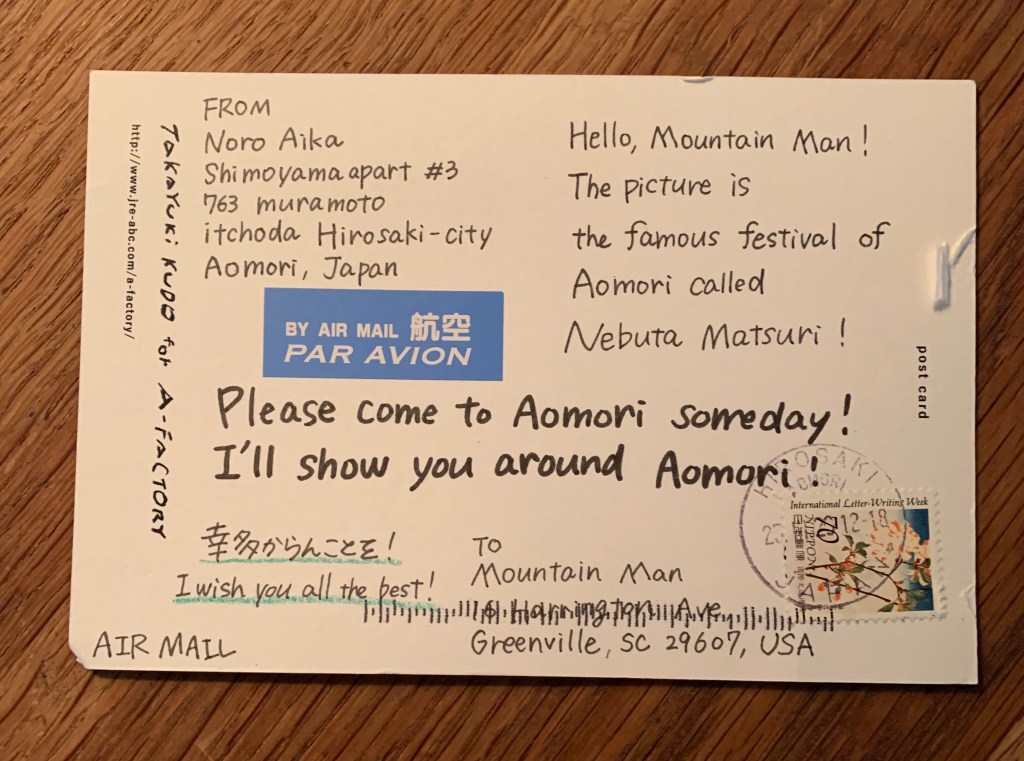 FROM
Noro Aika
Shimoyama apart #3
763 muramoto
itchoda Hirosaki-city
Aomori, Japan
BY AIR MAIL 航空
PAR AVION
Hello, Mountain Man!
The picture is
the famous festival of
Aomori called
Nebuta Matsuri!
Please come to Aomori someday!
I'll show you around Aomori!
幸多からんことを!
I wish you all the best!
AIR MAIL
TO
Mountain Man
16 Harrington Ave
Greenville, SC 29607, USA
TAKAYUKI KUDO for A-FACTORY
http://www.jre-abc.com/a-factory/
post card
HIROSAKI
AOMORI
12-18
International Letter-Writing Week
70
NIPPON